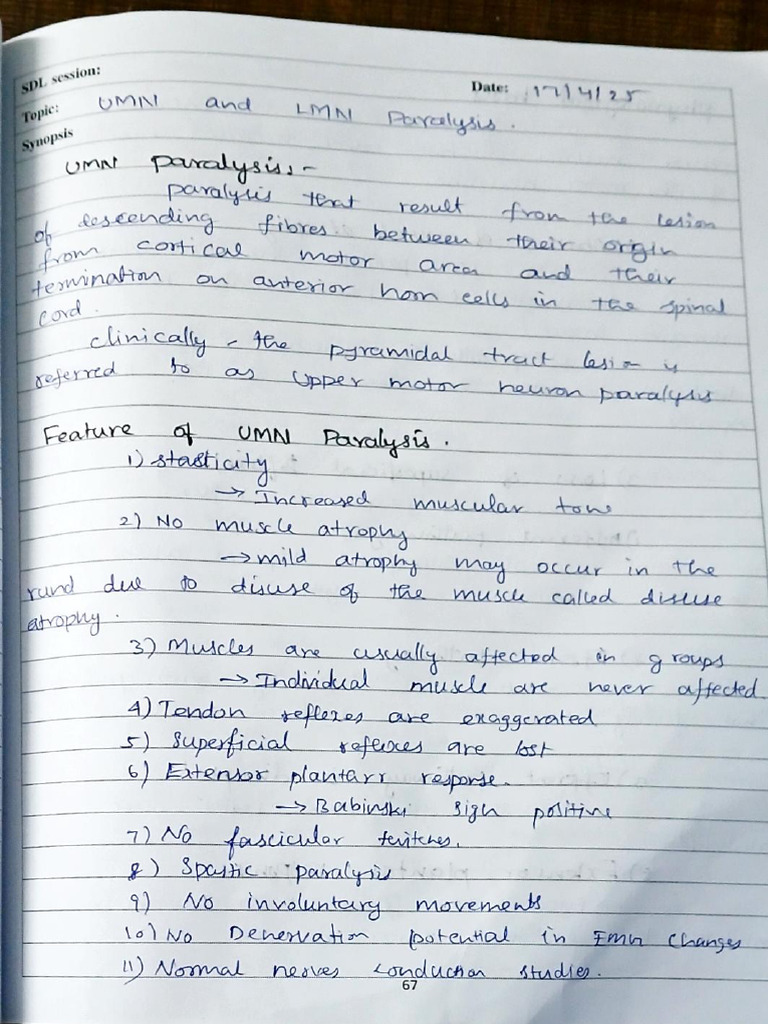 SDL session:
Date: 17/4/25
Topic: UMN and LMN Paralysis.
Synopsis
UMN paralysis:-
paralysis that result from the lesion
of descending fibres between their origin
from cortical motor area and their
termination on anterior horn cells in the spinal
cord.
clinically - the pyramidal tract lesion is
referred to as upper motor neuron paralysis
Feature of UMN Paralysis.
1) stasticity
→ Increased muscular tone
2) No muscle atrophy
→ mild atrophy may occur in the
rund due to disuse of the muscle called disuse
atrophy.
3) Muscles are usually affected in groups
→ Individual muscle are never affected
4) Tendon reflexes are exaggerated
5) Superficial reflexes are lost
6) Extensor plantarr response.
→ Babinski sign positive
7) No fascicular twitches.
8) Spastic paralysis
9) No involuntary movements
10) No Denervation potential in EMG changes
11) Normal nerves conduction studies.
67